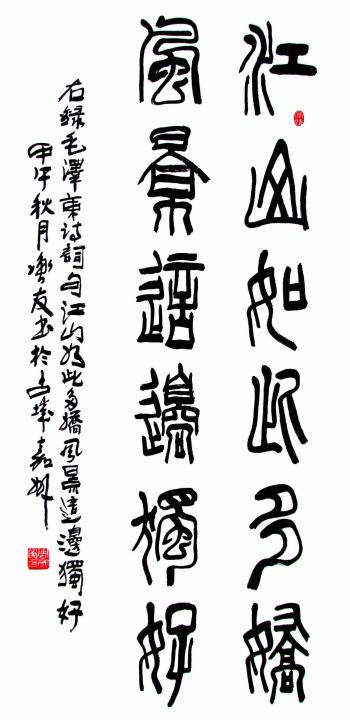 江山如此多嬌
風景這邊獨好
右錄毛澤東詩詞句江山如此多嬌風景這邊獨好
甲午秋月友書於古城嘉州